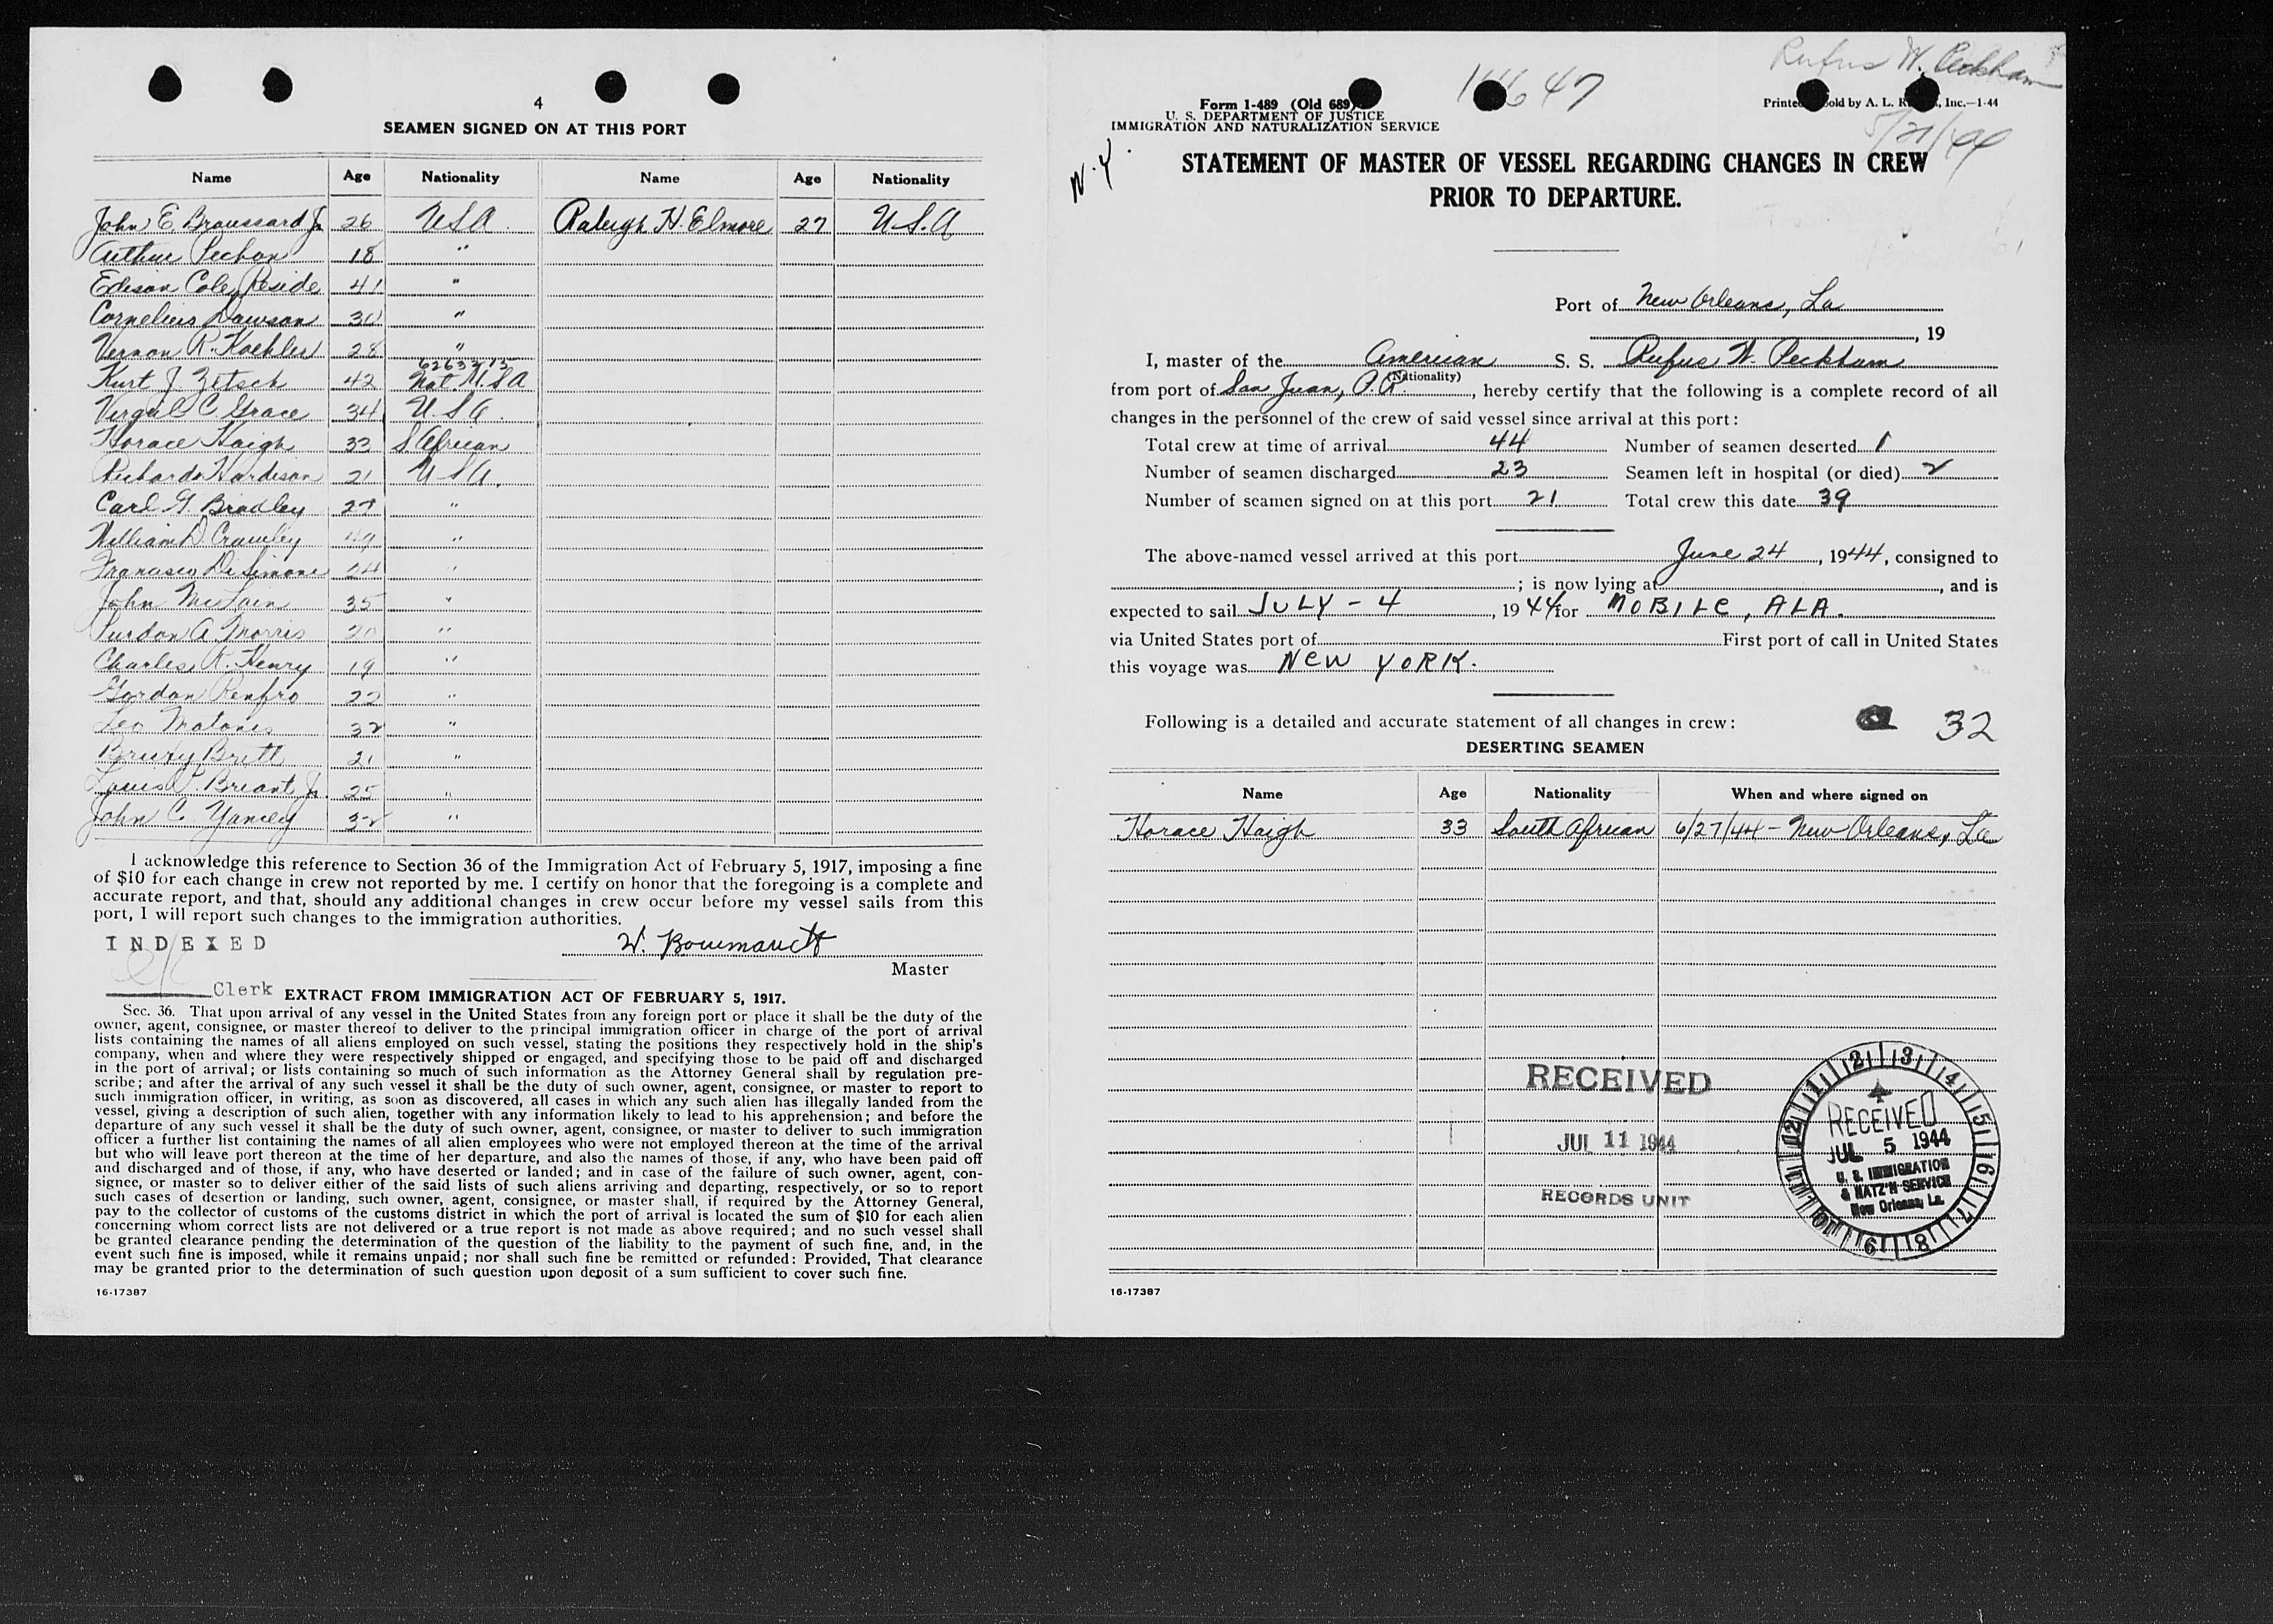 4
SEAMEN SIGNED ON AT THIS PORT
Name Age Nationality Name Age Nationality
John E Broussard Jr 26 USA Raleigh H. Elmore 27 U.S.A
Arthur 18 "
Edison Cole Reside 41 "
Cornelius Dawson 30 "
Vernon R. Koehler 28 "
Kurt J. Zetsch 42 Nat. U.S.A
Virgil C. Grace 34 U.S.A.
Horace Haigh 33 S. African
Richard Hardison 21 U.S.A.
Carl G. Bradley 27 "
William D Crawley 49 "
Francisco De Simone 24 "
John McLain 35 "
A. Morris 20 "
Charles R. Henry 19 "
Gordon Renfro 22 "
Leo 32 "
Brett 21 "
Louis P. Briant Jr. 25 "
John C. Yancey 32 "
I acknowledge this reference to Section 36 of the Immigration Act of February 5, 1917, imposing a fine
of $10 for each change in crew not reported by me. I certify on honor that the foregoing is a complete and
accurate report, and that, should any additional changes in crew occur before my vessel sails from this
port, I will report such changes to the immigration authorities.
INDEXED
W.
Master
Clerk
EXTRACT FROM IMMIGRATION ACT OF FEBRUARY 5, 1917.
Sec. 36. That upon arrival of any vessel in the United States from any foreign port or place it shall be the duty of the
owner, agent, consignee, or master thereof to deliver to the principal immigration officer in charge of the port of arrival
lists containing the names of all aliens employed on such vessel, stating the positions they respectively hold in the ship's
company, when and where they were respectively shipped or engaged, and specifying those to be paid off and discharged
in the port of arrival; or lists containing so much of such information as the Attorney General shall by regulation pre-
scribe; and after the arrival of any such vessel it shall be the duty of such owner, agent, consignee, or master to report to
such immigration officer, in writing, as soon as discovered, all cases in which any such alien has illegally landed from the
vessel, giving a description of such alien, together with any information likely to lead to his apprehension; and before the
departure of any such vessel it shall be the duty of such owner, agent, consignee, or master to deliver to such immigration
officer a further list containing the names of all alien employees who were not employed thereon at the time of the arrival
but who will leave port thereon at the time of her departure, and also the names of those, if any, who have been paid off
and discharged and of those, if any, who have deserted or landed; and in case of the failure of such owner, agent, con-
signee, or master so to deliver either of the said lists of such aliens arriving and departing, respectively, or so to report
such cases of desertion or landing, such owner, agent, consignee, or master shall, if required by the Attorney General,
pay to the collector of customs of the customs district in which the port of arrival is located the sum of $10 for each alien
concerning whom correct lists are not delivered or a true report is not made as above required; and no such vessel shall
be granted clearance pending the determination of the question of the liability to the payment of such fine, and, in the
event such fine is imposed, while it remains unpaid; nor shall such fine be remitted or refunded: Provided, That clearance
may be granted prior to the determination of such question upon deposit of a sum sufficient to cover such fine.
16-17387
Rufus W. Peckham
Form 1-489 (Old 689)
U. S. DEPARTMENT OF JUSTICE
IMMIGRATION AND NATURALIZATION SERVICE
Inc.—1-44
N.Y.
STATEMENT OF MASTER OF VESSEL REGARDING CHANGES IN CREW
PRIOR TO DEPARTURE.
Port of New Orleans, La
, 19
I, master of the American S. S. Rufus W. Peckham
(Nationality)
from port of San Juan, P.R., hereby certify that the following is a complete record of all
changes in the personnel of the crew of said vessel since arrival at this port:
Total crew at time of arrival 44 Number of seamen deserted 1
Number of seamen discharged 23 Seamen left in hospital (or died) 2
Number of seamen signed on at this port 21 Total crew this date 39
The above-named vessel arrived at this port June 24, 1944, consigned to
; is now lying at , and is
expected to sail JULY - 4, 1944 for MOBILE, ALA.
via United States port of First port of call in United States
this voyage was NEW YORK.
Following is a detailed and accurate statement of all changes in crew: 32
DESERTING SEAMEN
Name Age Nationality When and where signed on
Horace Haigh 33 South African 6/27/44 - New Orleans, La
RECEIVED
JUL 11 1944
RECORDS UNIT
RECEIVED
JUL 5 1944
U. S. IMMIGRATION
& NATZ'N SERVICE
New Orleans, La.
16-17387